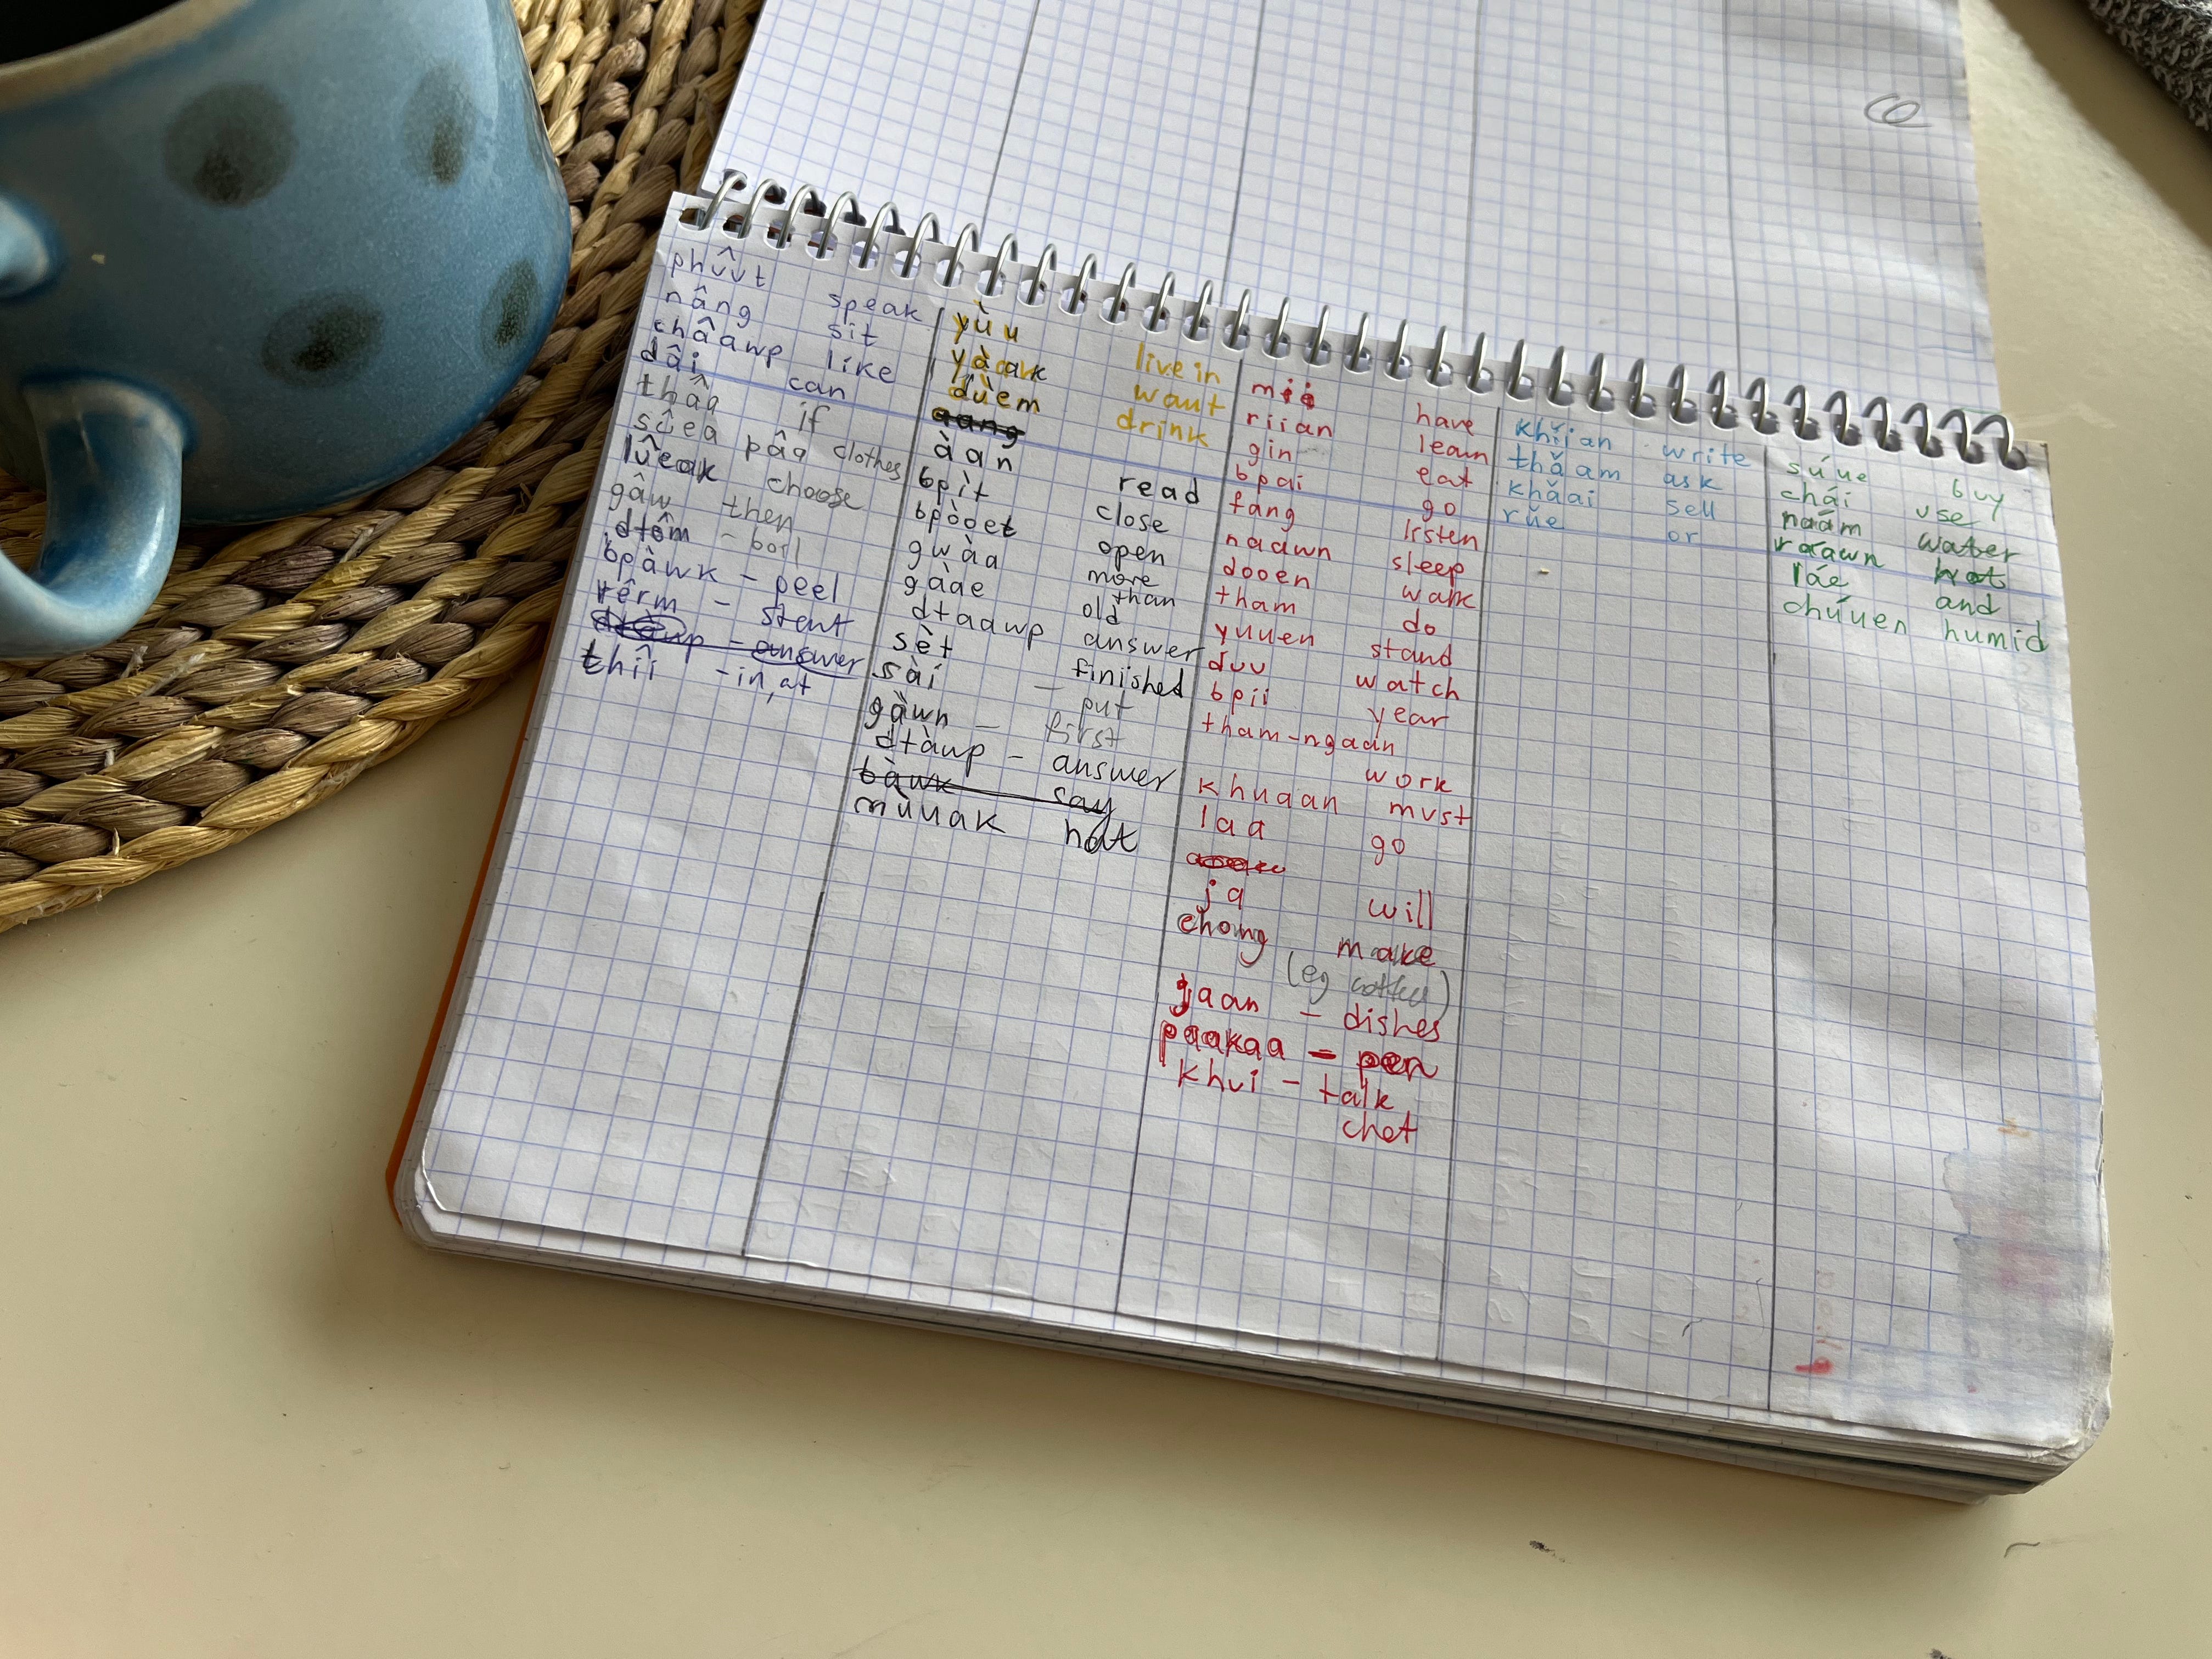 phûut speak
nâng sit
châawp like
dâi can
thâa if
sêea pâa clothes
lûeak choose
gâw then
dtôm - boil
bpàwk - peel
rêrm - start
dtàwp - answer
thîi - in, at
yùu live in
yàak want
dùem drink
aang
àan read
bpìt close
bpòoet open
gwàa more than
gàae old
dtaawp answer
sèt finished
sài - put
gàwn - first
dtàwp - answer
bàwk say
mùuak hat
mii have
riian learn
gin eat
bpai go
fang listen
naawn sleep
dooen walk
tham do
yuuen stand
duu watch
bpii year
tham-ngaan
work
khuaan must
laa go
ja will
chong make
(eg coffee)
jaan - dishes
paakaa - pen
khui - talk
chat
khǐian - write
thǎam ask
khǎai sell
rǔe or
súue buy
chái use
naám water
raáwn hot
láe and
chúuen humid